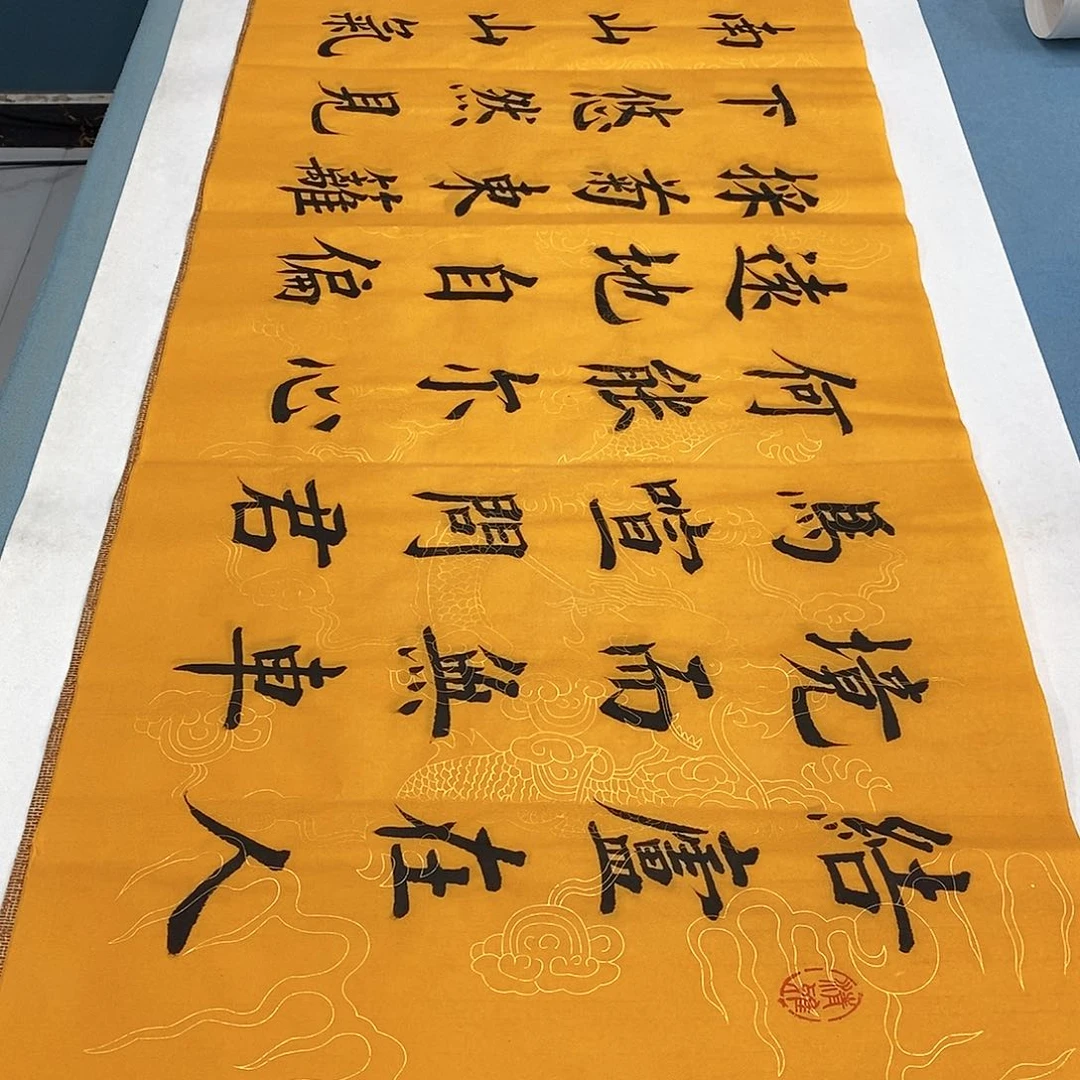 清雅
結廬在人
境而無車
馬喧問君
何能尔心
遠地自偏
採菊東籬
下悠然見
南山山氣